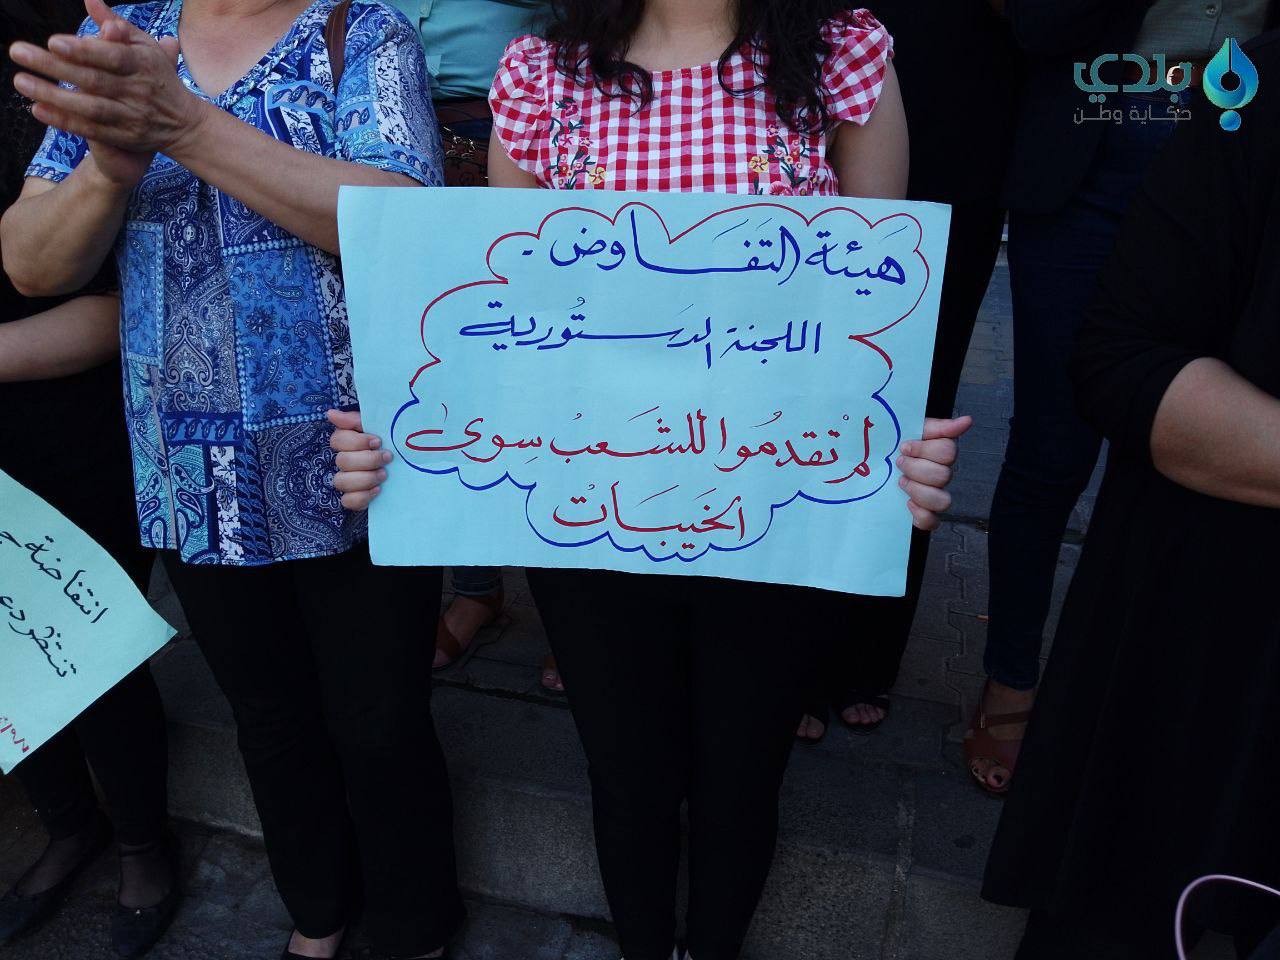 بلدي
حكاية وطن
هَيئة التفَاوض.
اللجنة الدَستُورية
لمْ تقدمُوا للشَعبْ سِوىٰ
الخَيبَاتْ
انتفاضة